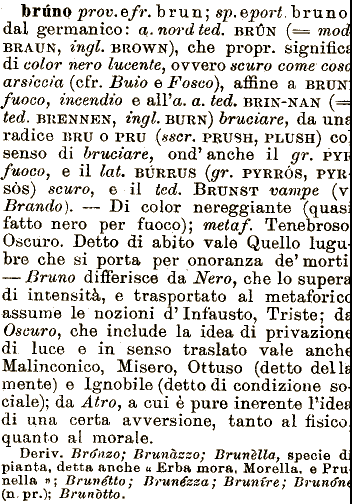 brúno prov. e fr. brun; sp. e port. bruno
dal germanico: a. nord ted. BRÛN (= mod
BRAUN, ingl. BROWN), che propr. significa
di color nero lucente, ovvero scuro come cosa
arsiccia (cfr. Buio e Fosco), affine a BRUN
fuoco, incendio e all'a. a. ted. BRIN-NAN (=
ted. BRENNEN, ingl. BURN) bruciare, da una
radice BRU o PRU (sscr. PRUSH, PLUSH) col
senso di bruciare, ond'anche il gr. PYR
fuoco, e il lat. BÚRRUS (gr. PYRRÓS, PYR-
SÒS) scuro, e il ted. BRUNST vampe (v
Brando). — Di color nereggiante (quasi
fatto nero per fuoco); metaf. Tenebroso
Oscuro. Detto di abito vale Quello lugu-
bre che si porta per onoranza de' morti
— Bruno differisce da Nero, che lo supera
di intensità, e trasportato al metaforico
assume le nozioni d'Infausto, Triste; da
Oscuro, che include la idea di privazione
di luce e in senso traslato vale anche
Malinconico, Misero, Ottuso (detto della
mente) e Ignobile (detto di condizione so-
ciale); da Atro, a cui è pure inerente l'idea
di una certa avversione, tanto al fisico
quanto al morale.
Deriv. Brónzo; Brunàzzo; Brunèlla, specie di
pianta, detta anche « Erba mora, Morella, e Pru
nella »; Brunétto; Brunézza; Bruníre; Brunóne
(n. pr.); Brunòtto.